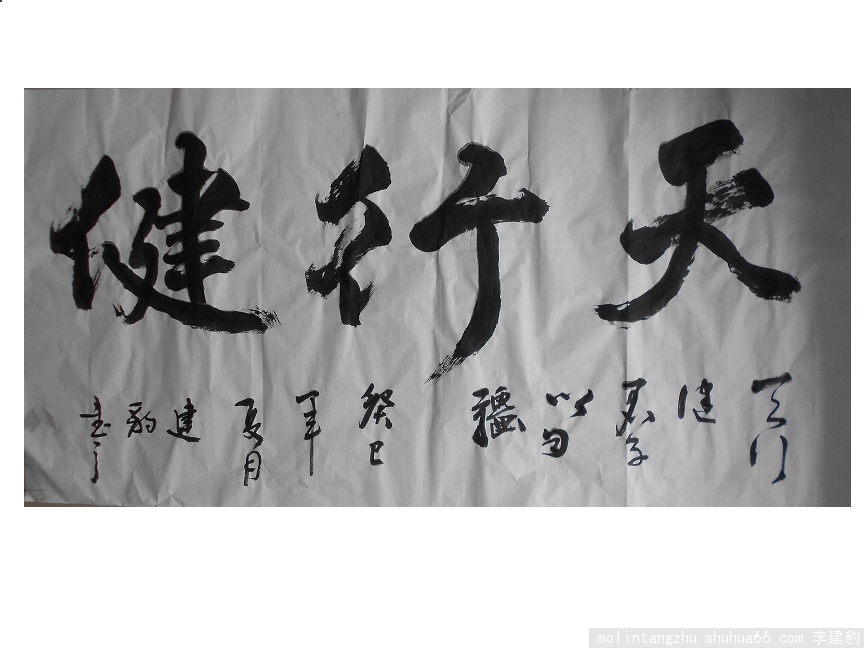 天行健
天行
健
君子
以自
癸巳
年
夏月
建
豹
書之
molintangzhu.shuhua66.com 李建豹